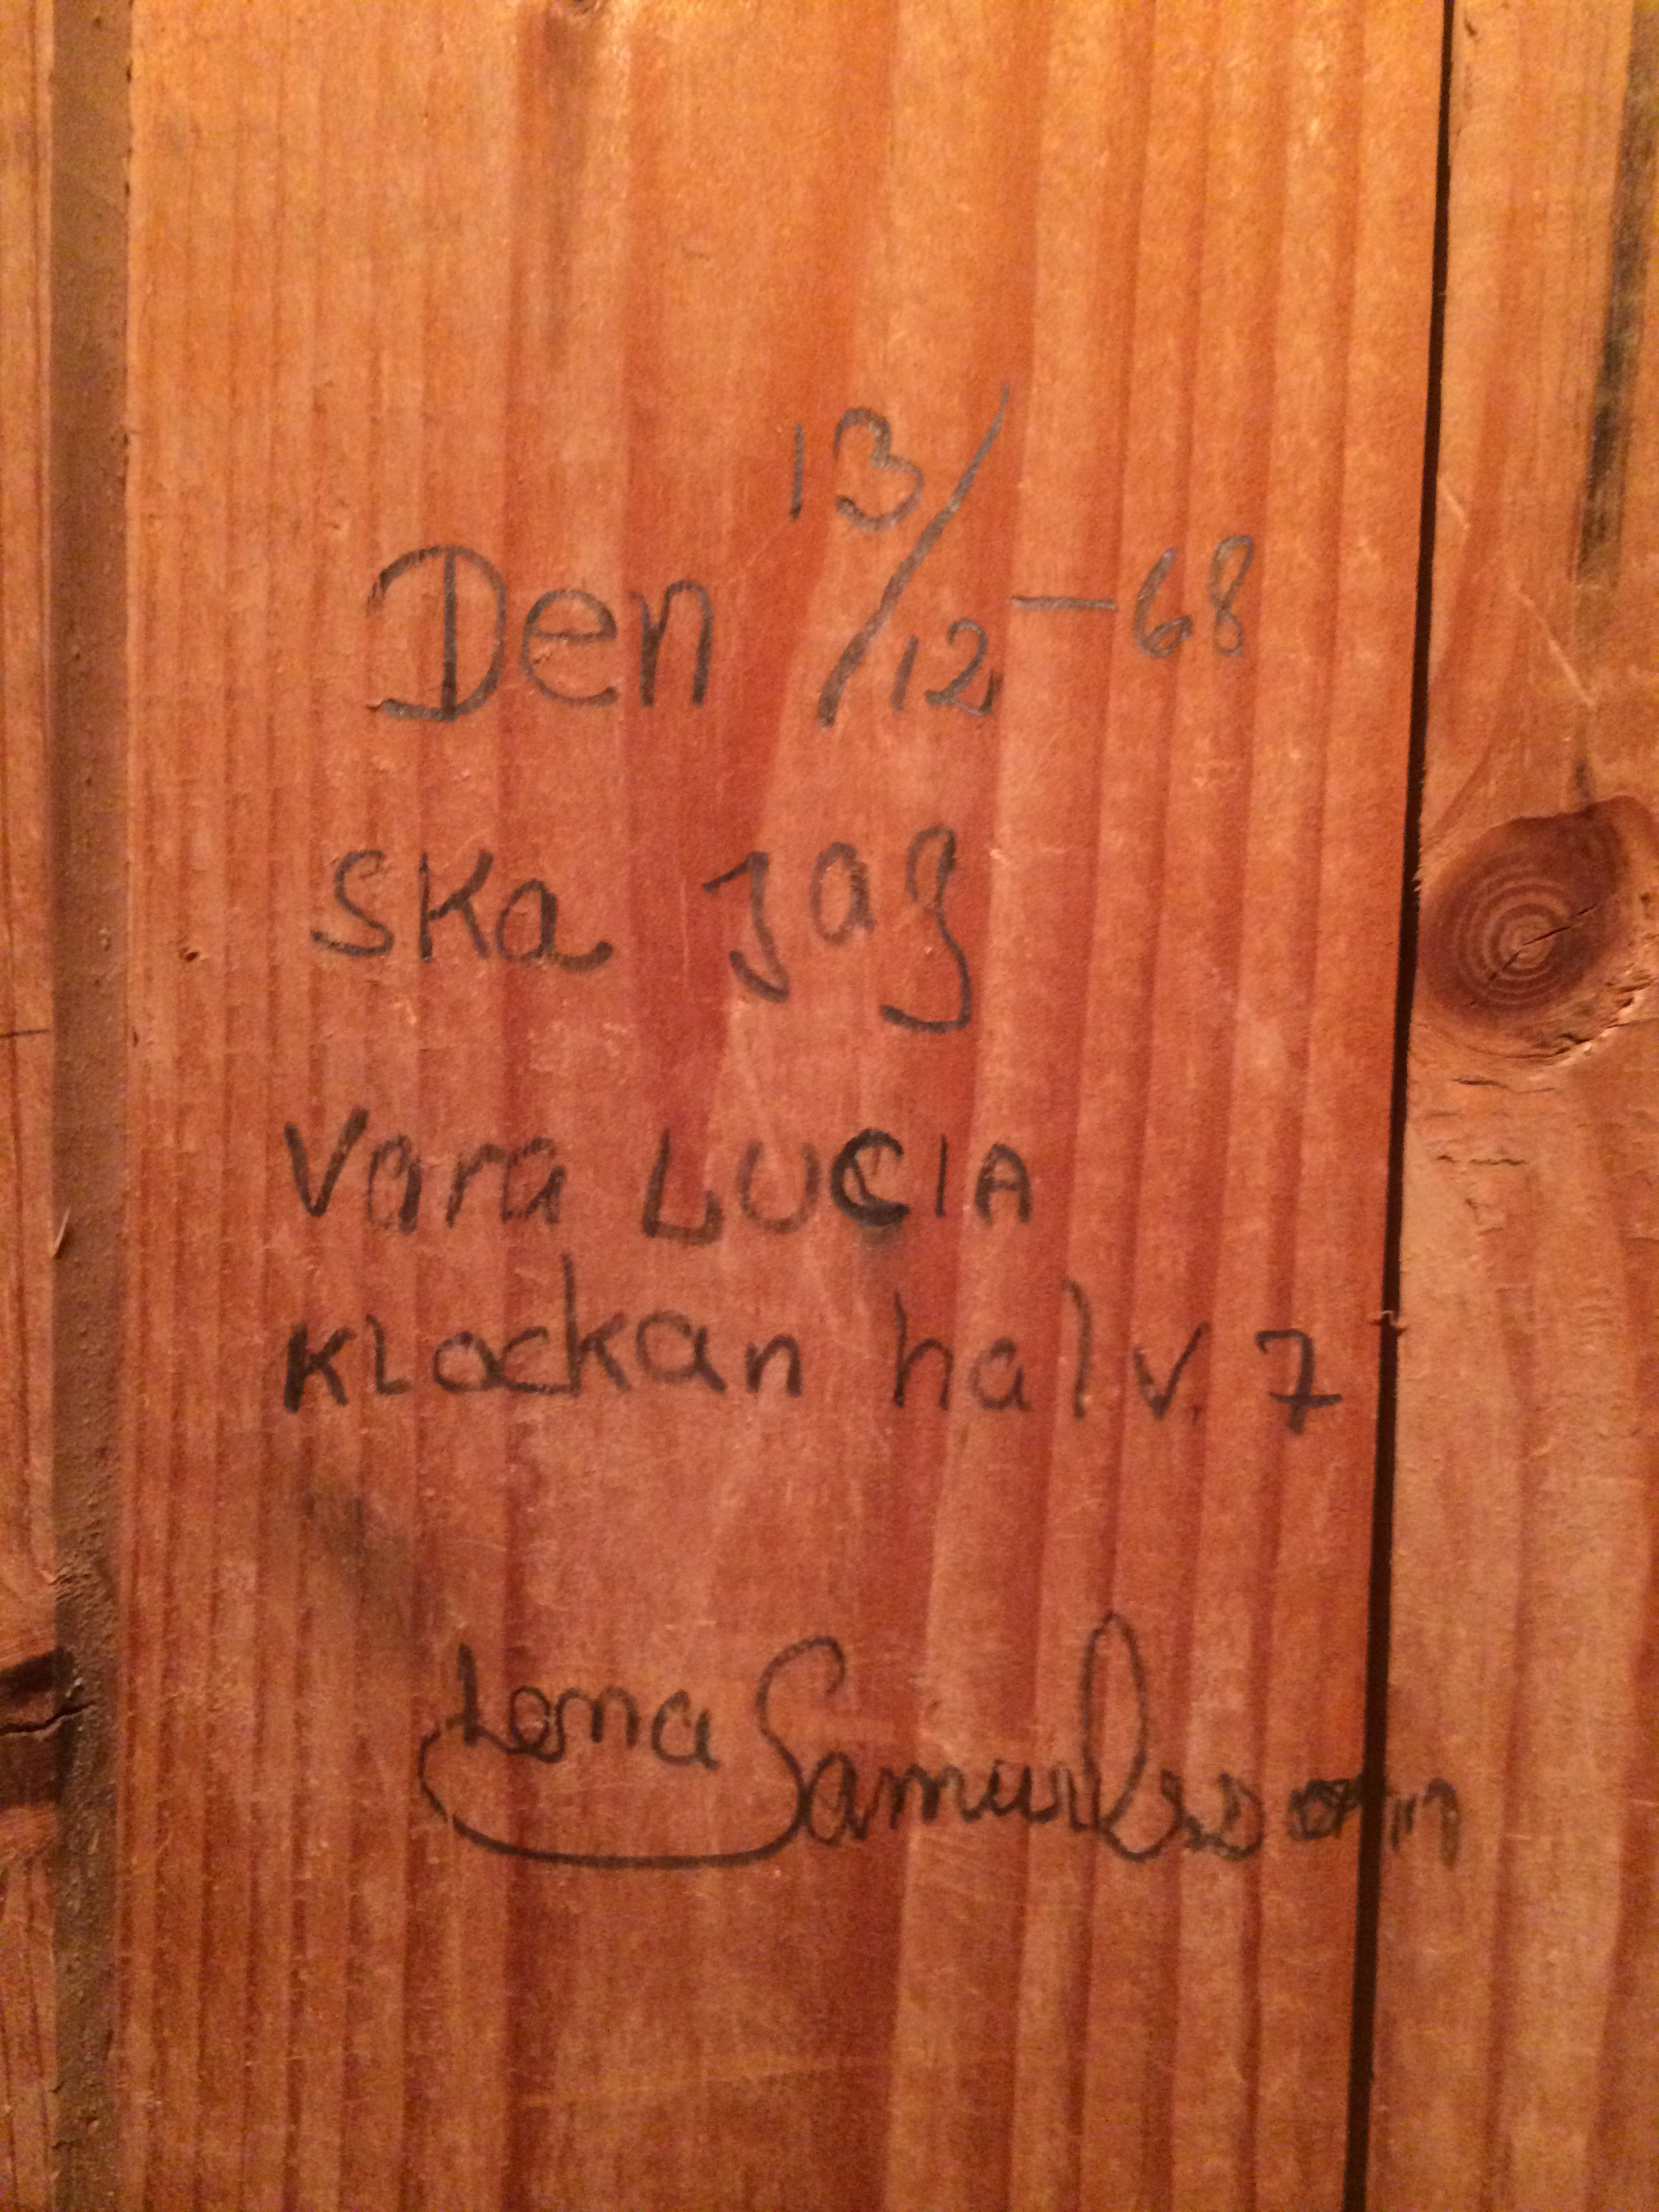 Den 13/12-68
ska jag
vara LUCIA
klockan halv. 7
Lena Samuelsson